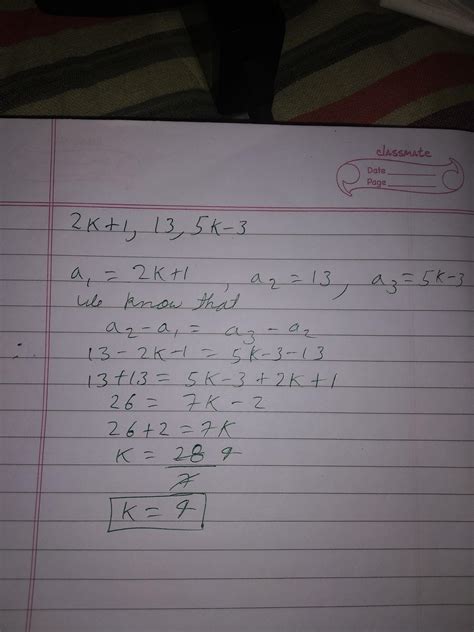 classmate
Date
Page
2K+1, 13, 5K-3
a₁ = 2K+1 , a₂ = 13, a₃ = 5K-3
We know that
a₂-a₁ = a₃-a₂
∴ 13-2K-1 = 5K-3-13
13+13 = 5K-3+2K+1
26 = 7K-2
26+2 = 7K
K = 28 4
7
K = 4